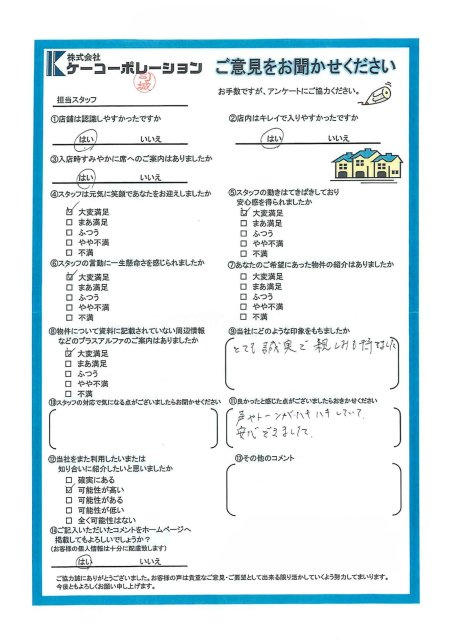 株式会社
ケーコーポレーション
ご意見をお聞かせください
お手数ですが、アンケートにご協力ください。
担当スタッフ
①店舗は認識しやすかったですか
はい いいえ
②店内はキレイで入りやすかったですか
はい いいえ
③入店時すみやかに席へのご案内はありましたか
はい いいえ
④スタッフは元気に笑顔であなたをお迎えしましたか
☑ 大変満足
□ まあ満足
□ ふつう
□ やや不満
□ 不満
⑤スタッフの動きはてきぱきしており
安心感を得られましたか
☑ 大変満足
□ まあ満足
□ ふつう
□ やや不満
□ 不満
⑥スタッフの言動に一生懸命さを感じられましたか
☑ 大変満足
□ まあ満足
□ ふつう
□ やや不満
□ 不満
⑦あなたのご希望にあった物件の紹介はありましたか
□ 大変満足
□ まあ満足
□ ふつう
□ やや不満
□ 不満
⑧物件について資料に記載されていない周辺情報
などのプラスアルファのご案内はありましたか
☑ 大変満足
□ まあ満足
□ ふつう
□ やや不満
□ 不満
⑨当社にどのような印象をもちましたか
とても誠実で親しみも持てました
⑩スタッフの対応で気になる点がございましたらお聞かせください
⑪良かったと感じた点がございましたらおきかせください
声やトーンがハキハキしていて、
安心できまして、
⑫当社をまた利用したいまたは
知り合いに紹介したいと思いましたか
□ 確実にある
☑ 可能性が高い
□ 可能性がある
□ 可能性が低い
□ 全く可能性はない
⑬その他のコメント
⑭ご記入いただいたコメントをホームページへ
掲載してもよろしいでしょうか？
(お客様の個人情報は十分に配慮致します)
はい いいえ
ご協力誠にありがとうございました。お客様の声は貴重なご意見・ご要望として出来る限り活かしていくよう努力してまいります。
今後ともよろしくお願い申し上げます。